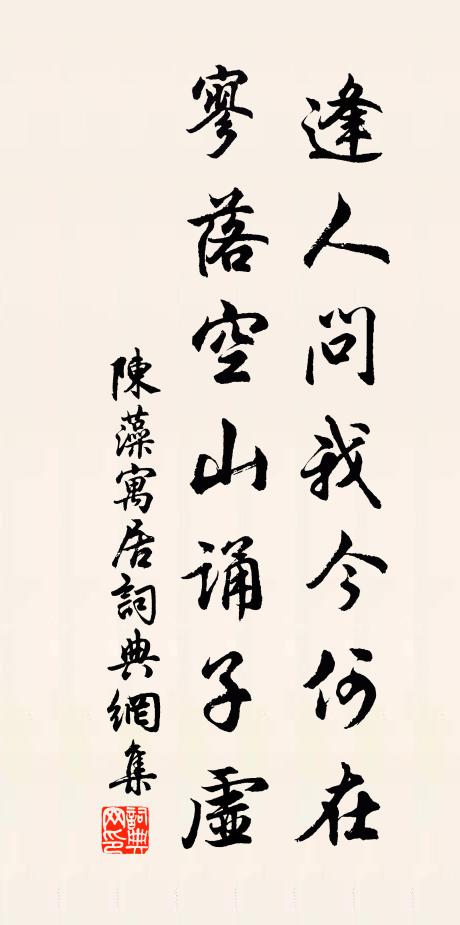 逢人問我今何在
寥落空山誦子虛
陳藻寓居詞典網集
詞典網印